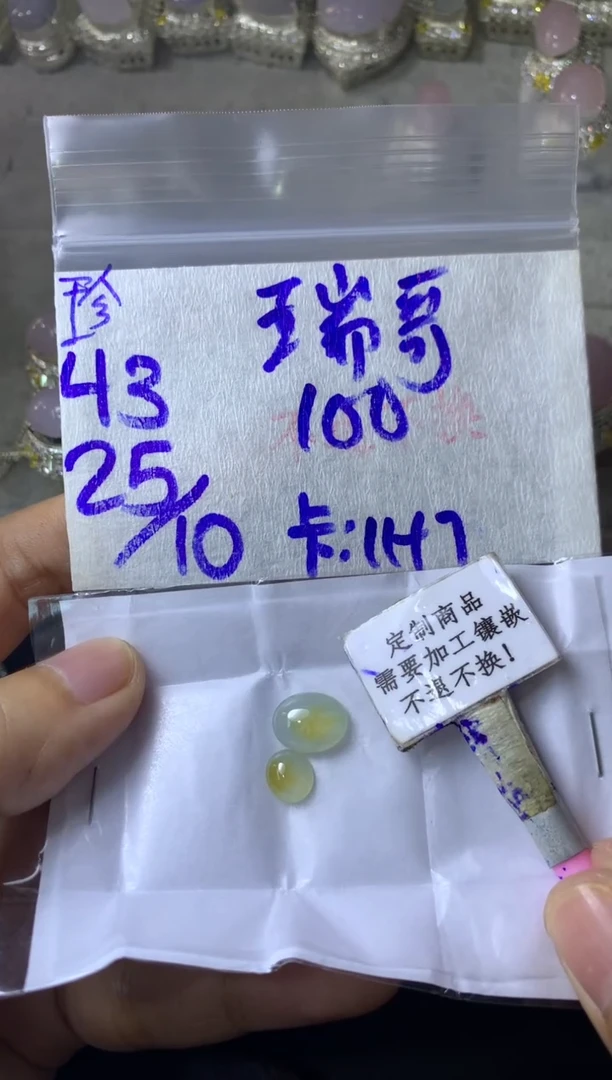 珍
43
25/10
瑞哥
100
卡:1147
定制商品
需要加工镶嵌
不退不换!